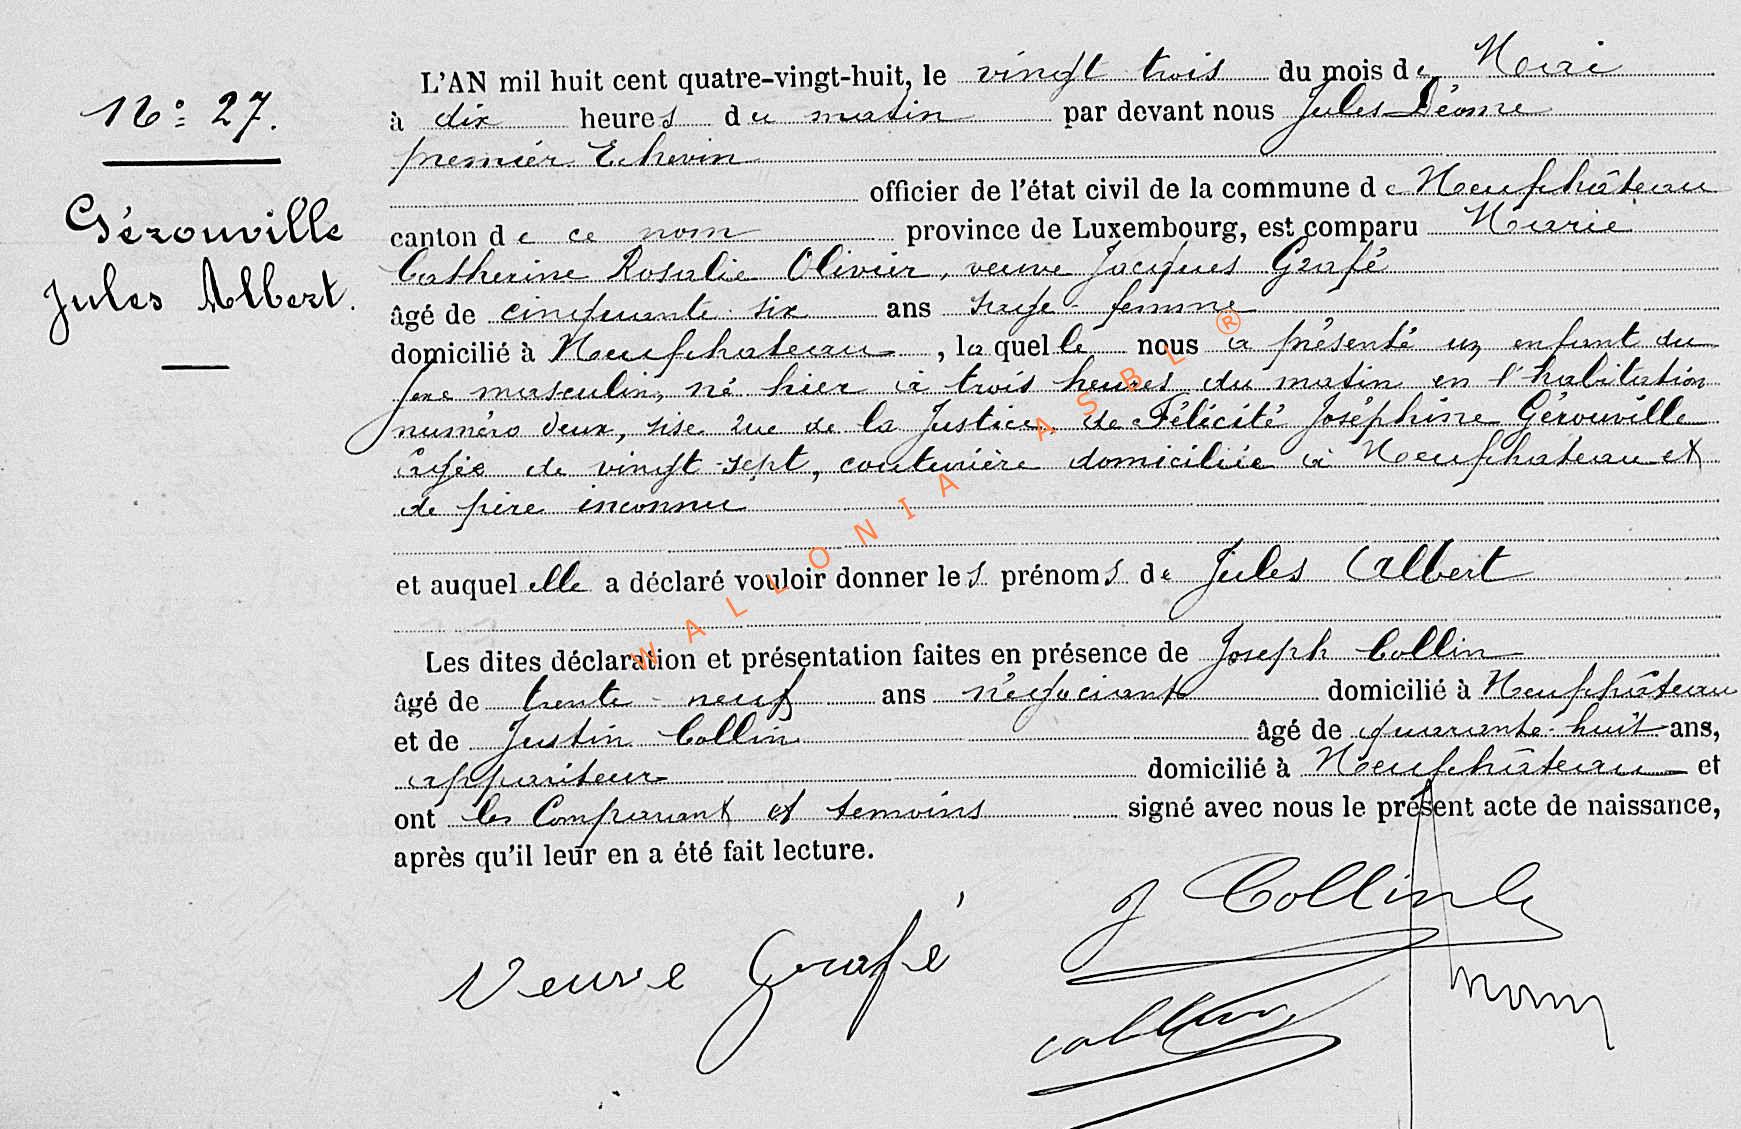 N° 27.
Gérouville
Jules Albert.
L'AN mil huit cent quatre-vingt-huit, le vingt trois du mois de Mai
à dix heures du matin par devant nous Jules
premier Echevin
officier de l'état civil de la commune de Neufchâteau
canton de ce nom province de Luxembourg, est comparu Marie
Catherine Rosalie Olivier, veuve Jacques Grafé
âgé de cinquante six ans sage-femme
domicilié à Neufchateau, laquelle nous a présenté un enfant du
sexe masculin, né hier à trois heures du matin en l'habitation
numéro deux, sise rue de la Justice, de Félicité Joséphine Gérouville
âgée de vingt-sept, couturière domiciliée à Neufchateau et
de père inconnu
et auquel elle a déclaré vouloir donner les prénoms de Jules Albert
Les dites déclaration et présentation faites en présence de Joseph Collin
âgé de trente-neuf ans négociant domicilié à Neufchâteau
et de Justin Collin âgé de quarante-huit ans,
appariteur domicilié à Neufchâteau et
ont les Comparant et témoins signé avec nous le présent acte de naissance,
après qu'il leur en a été fait lecture.
J Collin
Veuve Grafé
Collin
WALLONIA ASBL ®